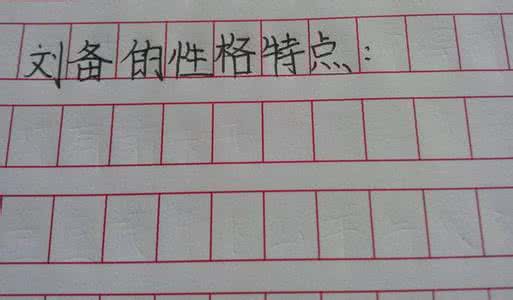 刘备的性格特点：